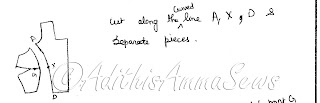 Curved
cut along the line A, X, D &
Separate pieces.
A
G X
D
@AdithisAmmaSews